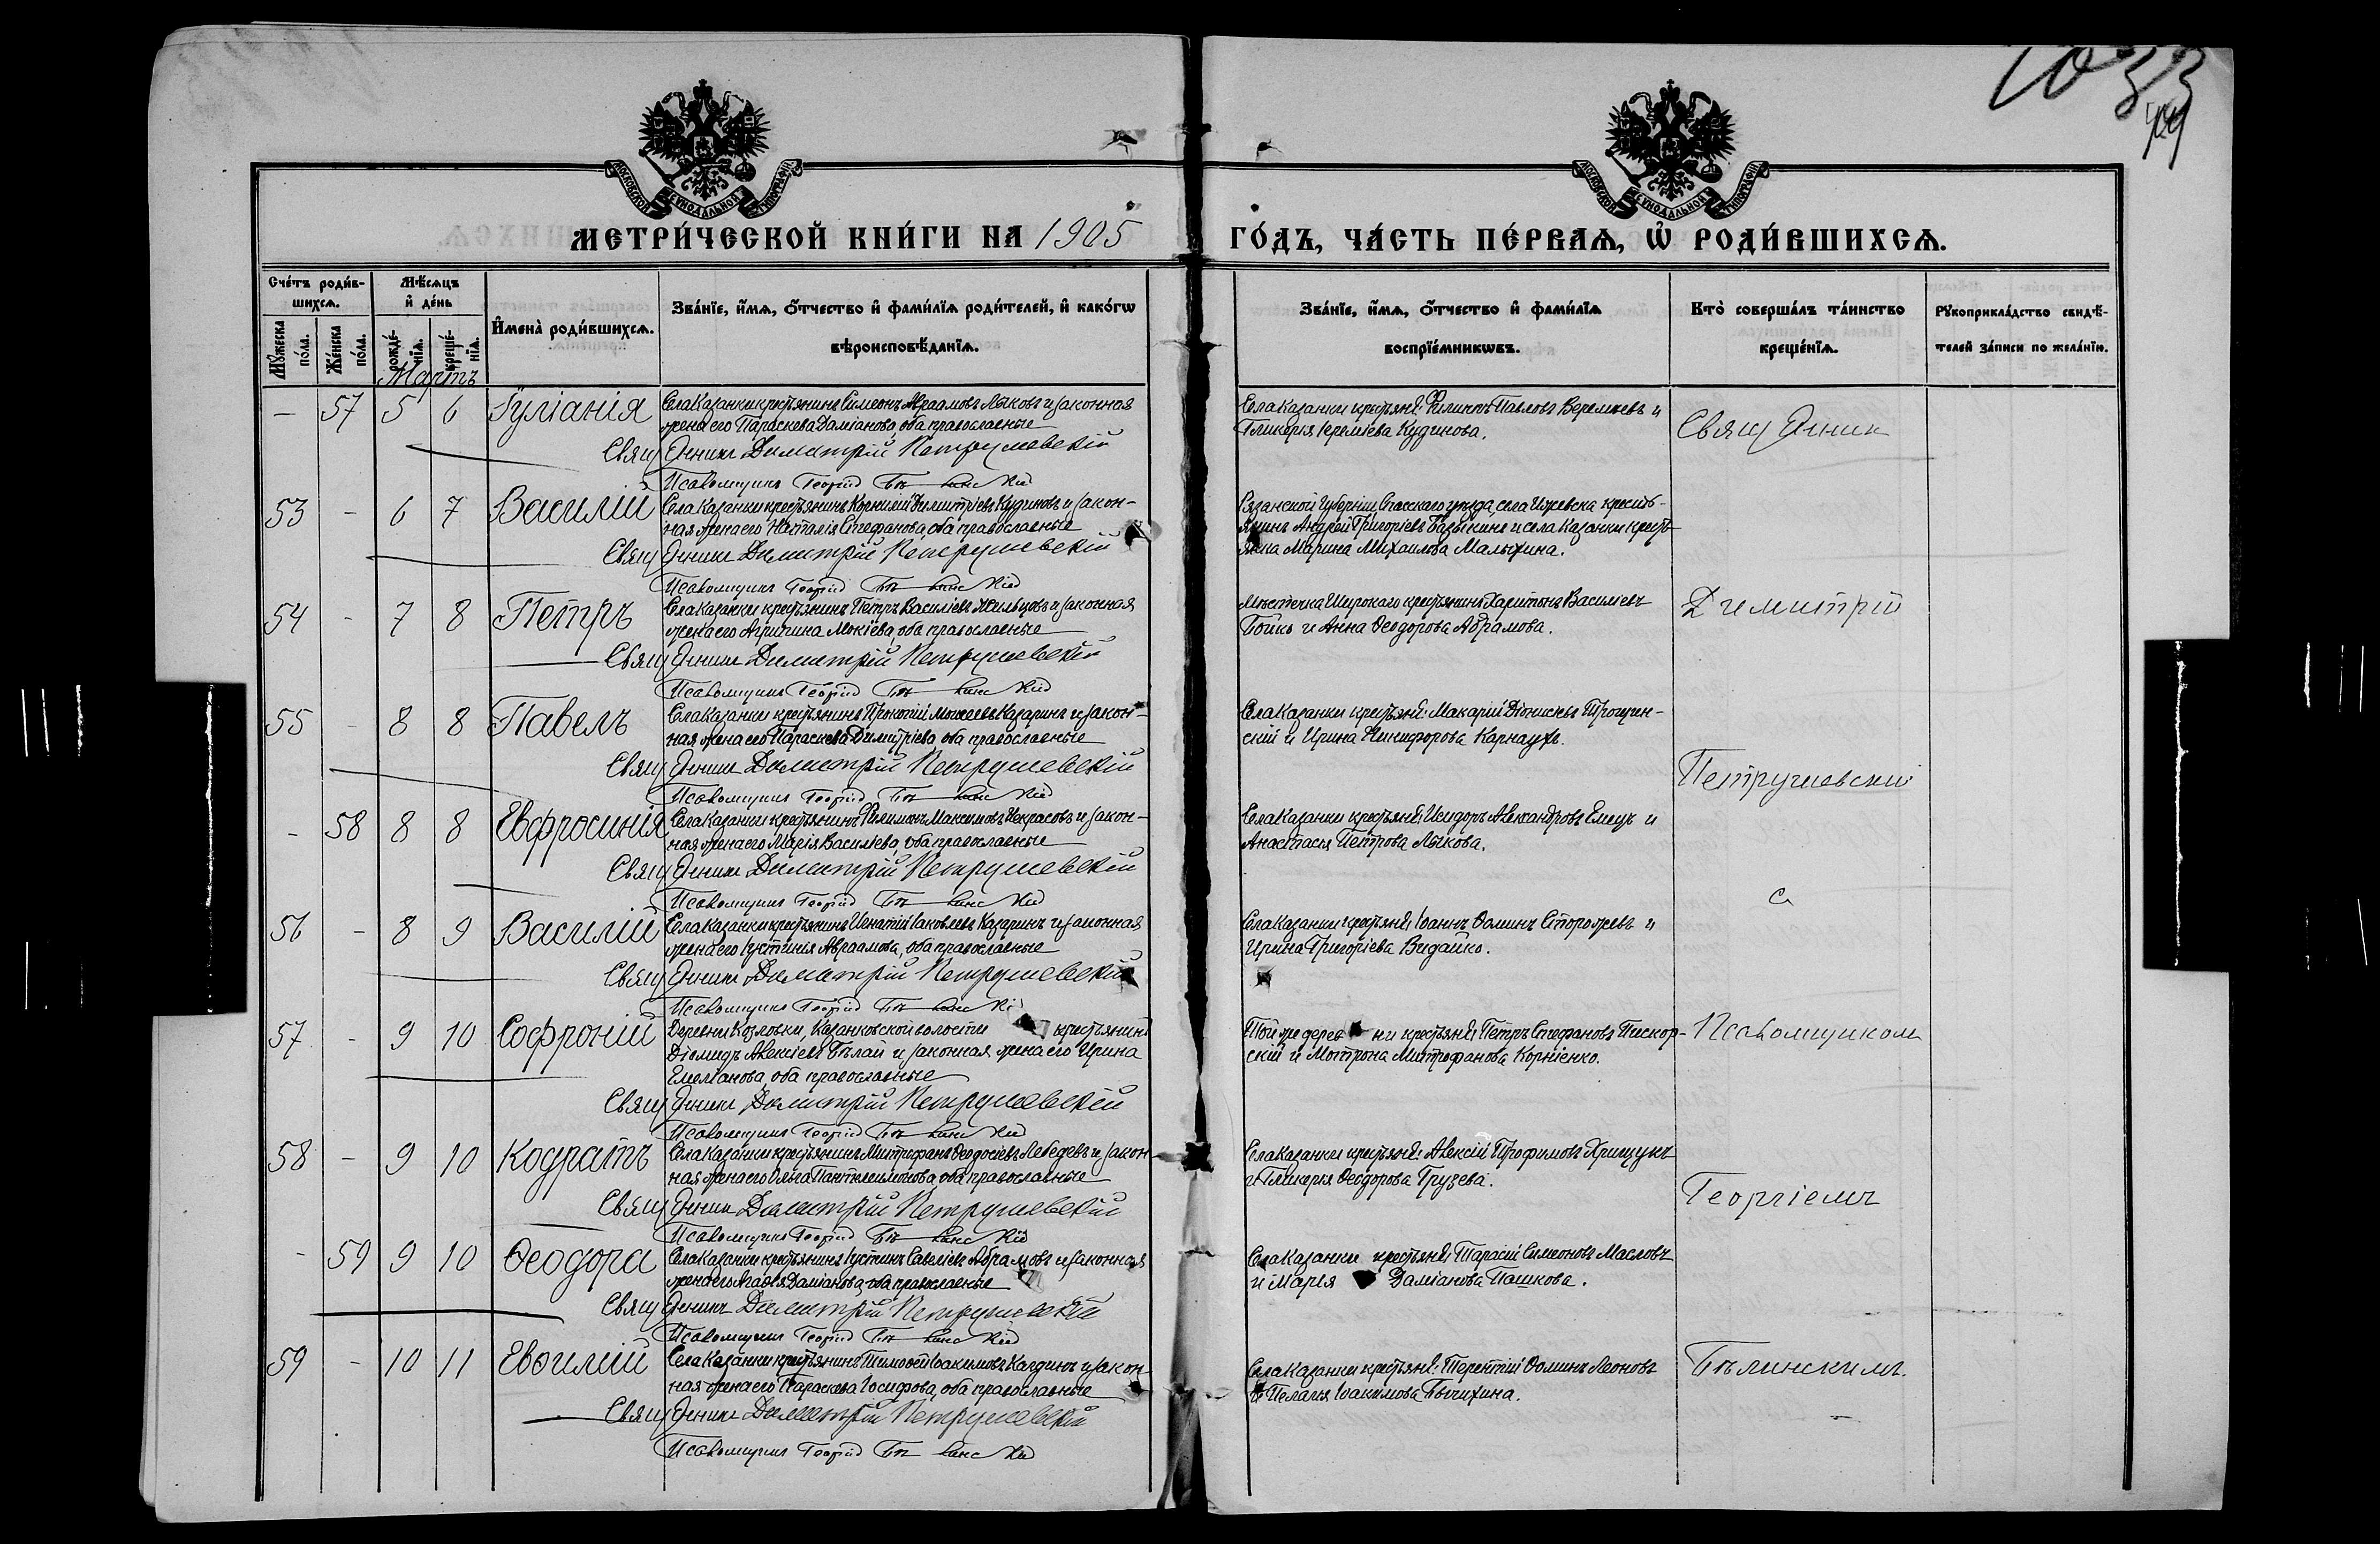 1033
МОСКОВСКОЙ СѴНОДАЛЬНОЙ ТИПОГРАФІИ
МОСКОВСКОЙ СѴНОДАЛЬНОЙ ТИПОГРАФІИ
МЕТРИ́ЧЕСКОЙ КНИ́ГИ НА 1905
ГО́ДЪ, ЧА́СТЬ ПЕ́РВАѦ, Ѡ҆ РОДИ́ВШИХСѦ.
Сче́тъ роди́в-
шихсѧ.
Мꙋ́жеска по́ла.
Же́нска по́ла.
Мѣ́сѧцъ
и҆ де́нь
рожде́-нїѧ.
креще́-нїѧ.
И҆мена̀ роди́вшихсѧ.
Зва́нїе, и҆́мѧ, ѻ҆́тчество и҆ фами́лїѧ роди́телей, и҆ како́гѡ
вѣроисповѣ́данїѧ.
Зва́нїе, и҆́мѧ, ѻ҆́тчество и҆ фами́лїѧ
воспрїе́мникѡвъ.
Кто̀ соверша́лъ та́инство
креще́нїѧ.
Рꙋкоприкла́дство свидѣ́-
телей за́писи по жела́нїю.
Мартъ
— 57 5 6 Іуліанія Села Казанки крестьянинъ Симеонъ Авраамовъ Лыковъ и законная
жена его Параскева Даміанова, оба православные
Священникъ Димитрій Петрушевскій
Псаломщикъ Георгій Бѣлинскій
Села Казанки крестьяне: Филиппъ Павловъ Веремеевъ и
Гликерія Іереміева Кудинова.
53 - 6 7 Василій Села Казанки крестьянинъ Корнилій Димитріевъ Кудиновъ и закон-
ная жена его Наталія Стефанова, оба православные
Священникъ Димитрій Петрушевскій
Псаломщикъ Георгій Бѣлинскій
Рязанской Губерніи, Спасскаго уезда, села Ижевска кресть-
янинъ Андрей Григоріевъ Базыкинъ и села Казанки кресть-
янка Марина Михаилова Малыхина.
54 - 7 8 Петръ Села Казанки крестьянинъ Петръ Василіевъ Жильцовъ и законная
жена его Агрипина Мокіева, оба православные
Священникъ Димитрій Петрушевскій
Псаломщикъ Георгій Бѣлинскій
Местечка Широкаго крестьянинъ Харитонъ Василіевъ
Бойко и Анна Ѳеодорова Абрамова.
55 - 8 8 Павелъ Села Казанки крестьянинъ Прокопій Моисеевъ Казаринъ и закон-
ная жена его Параскева Димитріева, оба православные
Священникъ Димитрій Петрушевскій
Псаломщикъ Георгій Бѣлинскій
Села Казанки крестьяне: Макарій Діонисіевъ Трощин-
скій и Ирина Никифорова Карнаухъ.
- 58 8 8 Евфросинія Села Казанки крестьянинъ Филимонъ Максимовъ Некрасовъ и закон-
ная жена его Марія Василіева, оба православные
Священникъ Димитрій Петрушевскій
Псаломщикъ Георгій Бѣлинскій
Села Казанки крестьяне: Исидоръ Александровъ Емецъ и
Анастасія Петрова Лыкова.
56 - 8 9 Василій Села Казанки крестьянинъ Игнатій Іаковлевъ Казаринъ и законная
жена его Іустинія Авраамова, оба православные
Священникъ Димитрій Петрушевскій
Псаломщикъ Георгій Бѣлинскій
Села Казанки крестьяне: Іоаннъ Ѳоминъ Сторожевъ и
Ирина Григоріева Видайко.
57 - 9 10 Софроній Деревни Козловки, Казанковской волости крестьянинъ
Діомидъ Алексіевъ Бѣлай и законная жена его Ирина
Емеліанова, оба православные
Священникъ Димитрій Петрушевскій
Псаломщикъ Георгій Бѣлинскій
Той же деревни крестьяне: Петръ Стефановъ Пискор-
скій и Мотрона Митрофанова Корніенко.
58 - 9 10 Кодратъ Села Казанки крестьянинъ Митрофанъ Ѳеодосіевъ Лебедевъ и закон-
ная жена его Ольга Пантелеимонова, оба православные
Священникъ Димитрій Петрушевскій
Псаломщикъ Георгій Бѣлинскій
Села Казанки крестьяне: Алексій Трофимовъ Хрищукъ
и Гликерія Ѳеодорова Грузева.
- 59 9 10 Ѳеодора Села Казанки крестьянинъ Іустинъ Савеліевъ Абрамовъ и законная
жена его Агаѳія Даміанова, оба православные
Священникъ Димитрій Петрушевскій
Псаломщикъ Георгій Бѣлинскій
Села Казанки крестьяне: Тарасій Симеоновъ Масловъ
и Марія Даміанова Пашкова.
59 - 10 11 Евѳимій Села Казанки крестьянинъ Тимоѳей Іоакимовъ Калдинъ и закон-
ная жена его Параскева Іосифова, оба православные
Священникъ Димитрій Петрушевскій
Псаломщикъ Георгій Бѣлинскій
Села Казанки крестьяне: Терентій Ѳоминъ Леоновъ
и Пелагія Іоакимова Бычихина.
Священник
Димитрій
Петрушевскій
с
Псаломщиком
Георгіемъ
Бѣлинскимъ.